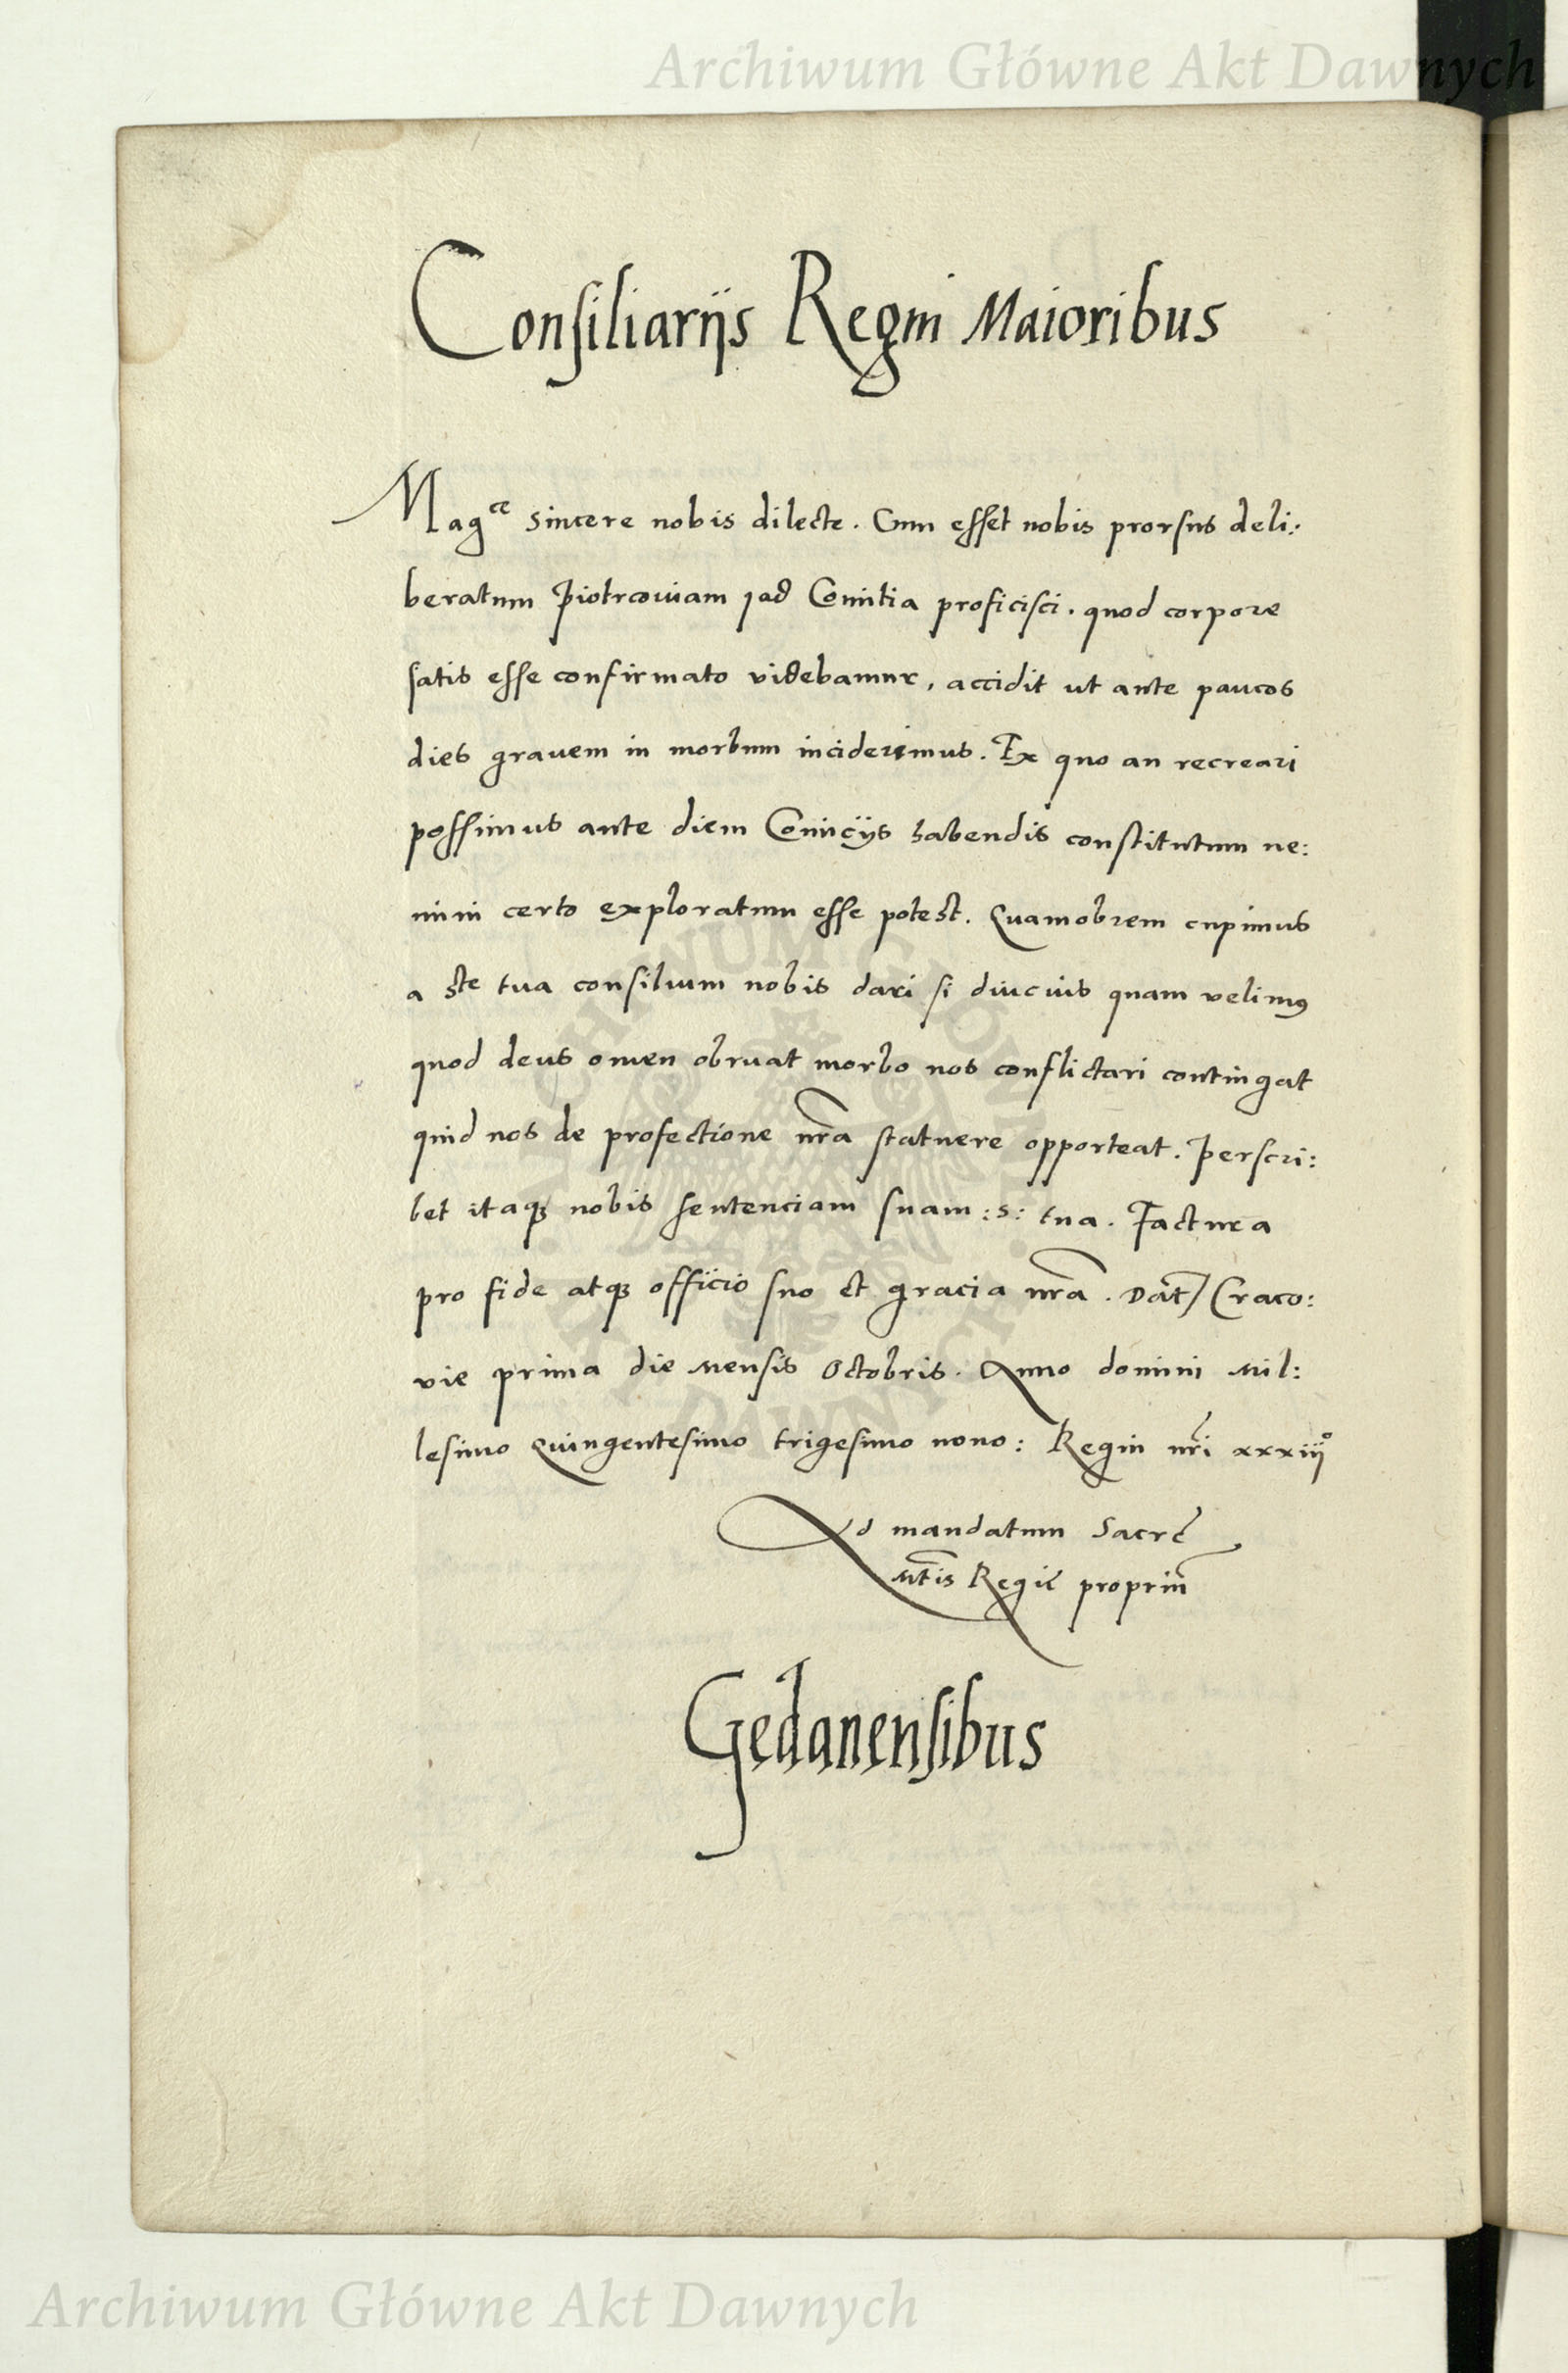 Archiwum Główne Akt Dawnych
Consiliarijs Regni Maioribus
Mag^ce sincere nobis dilecte. Cum esset nobis prorsus deli:
beratum Piotrcouiam ad Comitia proficisci. quod corpore
satis esse confirmato videbamur, accidit ut ante paucos
dies grauem in morbum inciderimus. Ex quo an recreari
possimus ante diem Comicijs habendis constitutum ne:
mini certo exploratum esse potest. Quamobrem cupimus
a Ste tua consilium nobis dari si diucius quam velimus
quod deus omen obruat morbo nos conflictari contingat
quid nos de profectione nra statuere opporteat. Perscri:
bet itaq3 nobis sentenciam suam :S: tua. Factura
pro fide atq3 officio suo et gracia nra. Dat Craco:
vie prima die mensis Octobris. Anno domini Mil:
lesimo Quingentesimo trigesimo nono: Regni nri xxxiij^o
Ad mandatum Sacre
Mtis Regie propriu
Gedanensibus
Archiwum Główne Akt Dawnych